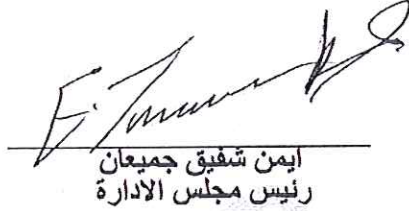 ايمن شفيق جميعان
رئيس مجلس الادارة